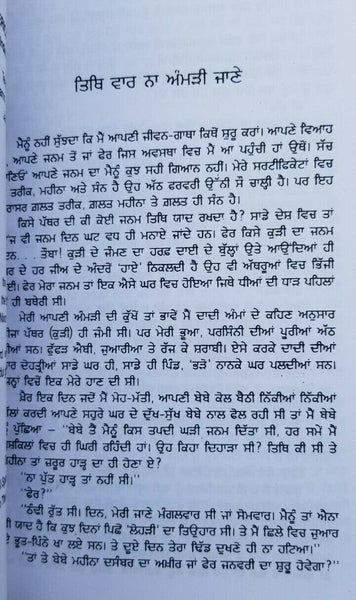 ਤਿਥਿ ਵਾਰ ਨਾ ਅੰਮੜੀ ਜਾਣੇ
ਮੈਨੂੰ ਨਹੀਂ ਸੁੱਝਦਾ ਕਿ ਮੈਂ ਆਪਣੀ ਜੀਵਨ-ਗਾਥਾ ਕਿਥੋਂ ਸ਼ੁਰੂ ਕਰਾਂ। ਆਪਣੇ ਵਿਆਹ
ਆਪਣੇ ਜਨਮ ਤੋਂ ਜਾਂ ਫੇਰ ਜਿਸ ਅਵਸਥਾ ਵਿਚ ਮੈਂ ਆ ਪਹੁੰਚੀ ਹਾਂ ਉਥੋਂ। ਸੱਚ
ਆਪਣੇ ਜਨਮ ਦਾ ਮੈਨੂੰ ਕੁਝ ਸਹੀ ਗਿਆਨ ਨਹੀਂ। ਮੇਰੇ ਸਰਟੀਫਿਕੇਟਾਂ ਵਿਚ
ਤਰੀਕ, ਮਹੀਨਾ ਅਤੇ ਸੰਨ ਹੈ ਉਹ ਅੱਠ ਫਰਵਰੀ ਉੱਨੀ ਸੌ ਚਾਲ੍ਹੀ ਹੈ। ਪਰ ਇਹ
ਰਾਸਰ ਗ਼ਲਤ ਤਰੀਕ, ਗ਼ਲਤ ਮਹੀਨਾ ਤੇ ਗ਼ਲਤ ਹੀ ਸੰਨ ਹੈ।
ਕਿਸੇ ਪੱਥਰ ਦੀ ਕੀ ਕੋਈ ਜਨਮ ਤਿਥਿ ਯਾਦ ਰਖਦਾ ਹੈ? ਸਾਡੇ ਦੇਸ਼ ਵਿਚ ਤਾਂ
ਜ ਵੀ ਜਨਮ ਦਿਨ ਘਟ ਵਧ ਹੀ ਮਨਾਏ ਜਾਂਦੇ ਹਨ। ਫੇਰ ਕਿਸੇ ਕੁੜੀ ਦਾ ਜਨਮ
ਨ... ਤੌਬਾ! ਕੁੜੀ ਦੇ ਜੰਮਣ ਦਾ ਹਰਫ਼ ਦਾਈ ਦੇ ਬੁੱਲ੍ਹਾਂ ਉਤੇ ਆਉਂਦਿਆਂ ਹੀ
ਰ ਦੇ ਹਰ ਜੀਅ ਦੇ ਅੰਦਰੋਂ 'ਹਾਏ' ਨਿਕਲਦੀ ਹੈ ਉਹ ਵੀ ਅੱਥਰੂਆਂ ਵਿਚ ਭਿੱਜੀ
ਈ। ਫੇਰ ਮੇਰਾ ਜਨਮ ਤਾਂ ਇਕ ਐਸੇ ਘਰ ਵਿਚ ਹੋਇਆ ਜਿਥੇ ਧੀਆਂ ਦੀ ਧਾੜ ਪਹਿਲਾਂ
ਹੀ ਬਥੇਰੀ ਸੀ।
ਮੇਰੀ ਆਪਣੀ ਅੰਮੜੀ ਦੀ ਕੁੱਖੋਂ ਤਾਂ ਭਾਵੇਂ ਮੈਂ ਦਾਦੀ ਅੰਮਾਂ ਦੇ ਕਹਿਣ ਅਨੁਸਾਰ
ਜਾ ਪੱਥਰ (ਕੁੜੀ) ਹੀ ਜੰਮੀ ਸਾਂ। ਪਰ ਮੇਰੀ ਭੂਆ, ਪਰਸਿੰਨੀ ਦੀਆਂ ਪੂਰੀਆਂ ਅੱਠ
ਆਂ ਸਨ। ਫੁੱਫੜ ਐਬੀ, ਜੁਆਰੀਆ ਤੇ ਰੱਜ ਕੇ ਸ਼ਰਾਬੀ। ਏਸੇ ਕਰਕੇ ਦਾਦੀ ਦੀਆਂ
ਾਰ ਦੋਹਤ੍ਰੀਆਂ ਸਾਡੇ ਘਰ ਹੀ, ਸਾਡੇ ਹੀ ਪਿੰਡ, 'ਭੜੋ' ਨਾਨਕੇ ਘਰ ਪਲਦੀਆਂ ਸਨ।
ਨ੍ਹਾਂ ਵਿਚੋਂ ਇਕ ਮੇਰੇ ਹਾਣ ਦੀ ਸੀ।
ਖ਼ੈਰ ਇਕ ਦਿਨ ਜਦੋਂ ਮੈਂ ਮੋਹ-ਮੱਤੀ, ਆਪਣੀ ਬੇਬੇ ਕੋਲ ਬੈਠੀ ਨਿੱਕੀਆਂ ਨਿੱਕੀਆਂ
ਲਾਂ ਕਰਦੀ ਆਪਣੇ ਸਹੁਰੇ ਘਰ ਦੇ ਦੁੱਖ-ਸੁੱਖ ਬੇਬੇ ਨਾਲ ਫੋਲ ਰਹੀ ਸੀ ਤਾਂ ਮੈਂ ਬੇਬੇ
ਪੁੱਛਿਆ — "ਬੇਬੇ ਤੈਂ ਮੈਨੂੰ ਕਿਸ ਤਪਦੀ ਘੜੀ ਜਨਮ ਦਿੱਤਾ ਸੀ, ਹਰ ਸਮੇਂ ਮੈਂ
ਸ਼ਕਿਲਾਂ ਵਿਚ ਹੀ ਘਿਰੀ ਰਹਿੰਦੀ ਹਾਂ। ਉਹ ਕਿਹਾ ਦਿਹਾੜਾ ਸੀ? ਤਿਥਿ ਕੀ ਸੀ ਤੇ
ਹੀਨਾ ਤਾਂ ਜ਼ਰੂਰ ਹਾੜ੍ਹ ਦਾ ਹੀ ਹੋਣਾ ਏ?
"ਨਾ ਪੁੱਤ ਹਾੜ੍ਹ ਤਾਂ ਨਹੀਂ ਸੀ।"
"ਫੇਰ?"
"ਠੰਢੀ ਰੁੱਤ ਸੀ। ਦਿਨ, ਮੇਰੀ ਜਾਣੇ ਮੰਗਲਵਾਰ ਸੀ ਜਾਂ ਸੋਮਵਾਰ। ਮੈਨੂੰ ਤਾਂ ਐਨਾ
ੀ ਯਾਦ ਹੈ ਕਿ ਕੁਝ ਦਿਨਾਂ ਪਿਛੋਂ 'ਲੋਹੜੀ' ਦਾ ਤਿਉਹਾਰ ਸੀ। ਤੇ ਮੈਂ ਛਿਲੇ ਵਿਚ ਜੁਆਰ
ਭੂਤ-ਪਿੰਨੇ ਖਾ ਲਏ ਸਨ। ਤੇ ਦੂਏ ਦਿਨ ਤੇਰਾ ਢਿੱਡ ਦੁਖਣੋਂ ਹੀ ਨਾ ਹਟਿਆ।"
"ਤਾਂ ਤੇ ਬੇਬੇ ਮਹੀਨਾ ਦਸੰਬਰ ਦਾ ਅਖ਼ੀਰ ਜਾਂ ਫੇਰ ਜਨਵਰੀ ਦਾ ਸ਼ੁਰੂ ਹੋਵੇਗਾ?"